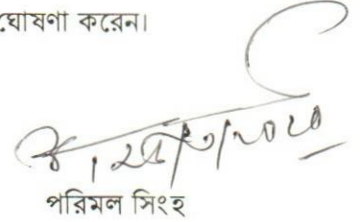 ঘোষণা করেন।
পরিমল সিংহ